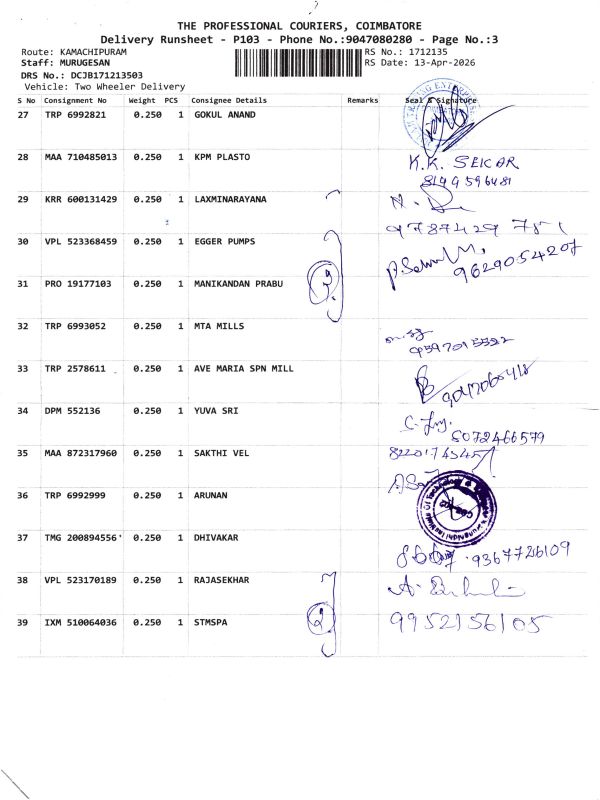 THE PROFESSIONAL COURIERS, COIMBATORE
Delivery Runsheet - P103 - Phone No.:9047080280 - Page No.:3
Route: KAMACHIPURAM RS No.: 1712135
Staff: MURUGESAN RS Date: 13-Apr-2026
DRS No.: DCJB171213503
Vehicle: Two Wheeler Delivery
S No Consignment No Weight PCS Consignee Details Remarks Seal & Signature
27 TRP 6992821 0.250 1 GOKUL ANAND
28 MAA 710485013 0.250 1 KPM PLASTO K.K. SEKAR
8149596481
29 KRR 600131429 0.250 1 LAXMINARAYANA
9787429781
30 VPL 523368459 0.250 1 EGGER PUMPS
9629054207
31 PRO 19177103 0.250 1 MANIKANDAN PRABU 3
32 TRP 6993052 0.250 1 MTA MILLS
33 TRP 2578611 0.250 1 AVE MARIA SPN MILL
34 DPM 552136 0.250 1 YUVA SRI
8072466579
35 MAA 872317960 0.250 1 SAKTHI VEL
36 TRP 6992999 0.250 1 ARUNAN
37 TMG 200894556' 0.250 1 DHIVAKAR
9367726109
38 VPL 523170189 0.250 1 RAJASEKHAR
39 IXM 510064036 0.250 1 STMSPA 2 9952156105